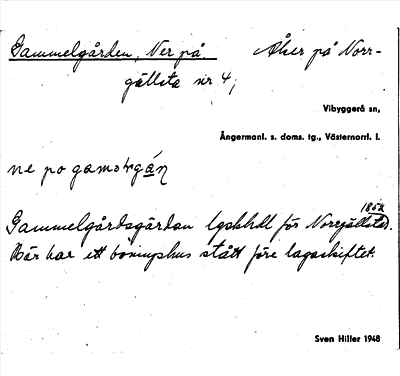 Gammelgården, Ner på. Åker på Norr-
gällsta nr 4;
Vibyggerå sn,
Ångermanl. s. doms. tg., Västernorrl. l.
ne po gamo
1857
Gammelgårdsgärdan lgskhdl för Norrgällsta.
Här har ett boningshus stått före lagaskiftet.
Sven Hiller 1948